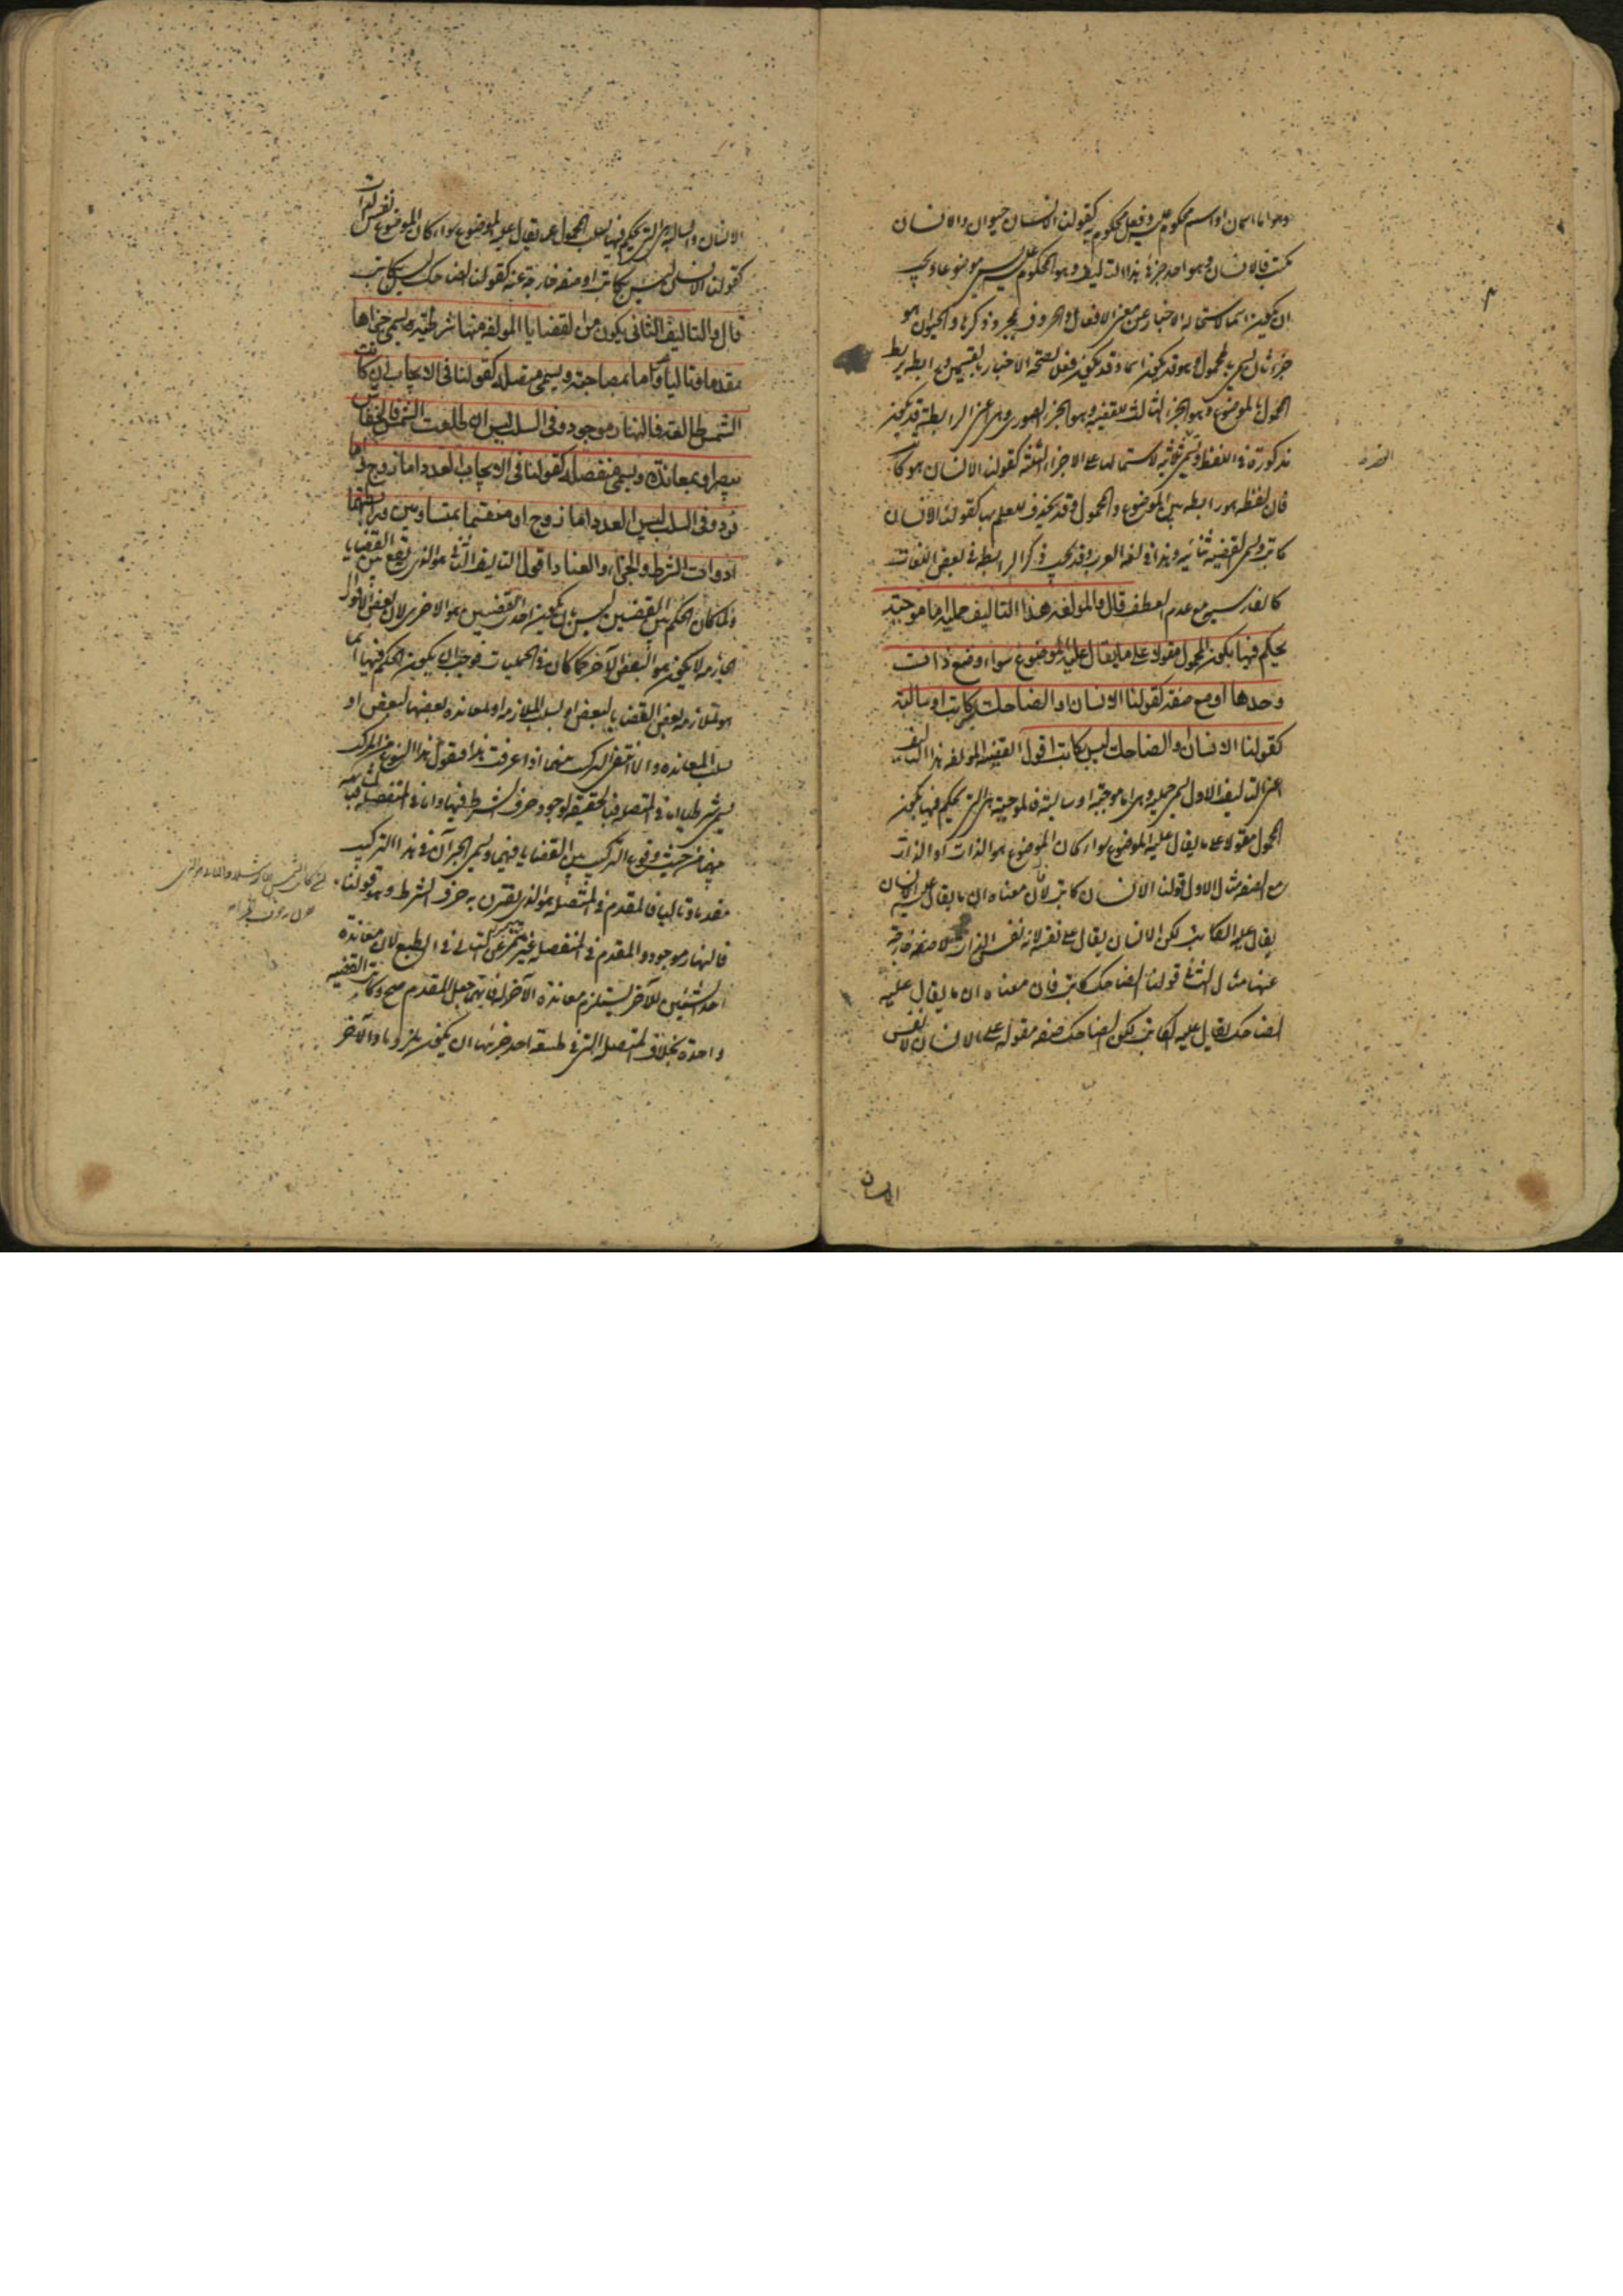 وهو اما اسمان او اسم محكوم عليه وفعل محكوم به كقولنا الانسان حيوان والانسان
يكتب فالانسان وهو احد جزئى هذا التاليف وهو المحكوم عليه يسمى موضوعا ويجب
ان يكون اسما لاستحالة الاخبار عن معنى الافعال والحروف بمجرد ذكرها والحيوان هو
جزء ثان يسمى محمولا وهو قد يكون اسما وقد يكون فعلا لصحة الاخبار بالقسمين وله رابطة يربط
المحول بالموضوع وهو الجزء الثالث للقضية وهو الجزء الصورى وهى اعنى الرابطة قد يكون
مذكورة فى اللفظ ويسمى ثلاثية لاشتمالها على الاجزاء الثلثة كقولنا الانسان هو كاتب
فان لفظه هو رابطة بين الموضوع والمحمول وقد يحذف للعلم بها كقولنا الانسان
كاتب ويسمى القضية ثنائية وهذا فى لغة العرب وقد يجب ذكر الرابطة فى بعض اللغات
كالفارسية مع عدم العطف قال والمولفة هذا التاليف حملية اما موجبة
يحكم فيها بكون المحمول مقولا على ما يقال عليه الموضوع سواء وضع ذات
وحدها او مع صفة كقولنا الانسان او الضاحك كاتب او سالبة
كقولنا الانسان او الضاحك ليس بكاتب اقول القضية المولفة هذا التاليف
اعنى التاليف الاول يسمى حملية وهى اما موجبة او سالبة فالموجبة هى التى يحكم فيها بكون
المحمول مقولا على ما يقال عليه الموضوع سواء كان الموضوع هو الذات او الذات
مع الصفة مثال الاول قولنا الانسان كاتب لان معناه ان ما يقال عليه الانسان
يقال عليه الكاتب لكن الانسان يقال على نفسه لانه نفس الذات لا صفة خارجة
عنها مثال الثانى قولنا الضاحك كاتب فان معناه ان ما يقال عليه
الضاحك يقال عليه الكاتب لكن الضاحك صفة مقولة على الانسان لا نفس
الانسان
الانسان والسالبة هى التى يحكم فيها بسلب المحمول عما يقال عليه الموضوع سواء كان الموضوع نفس الذات
كقولنا الانسان ليس بكاتب او صفة خارجة عنه كقولنا الضاحك ليس بكاتب
قال والتاليف الثانى يكون من القضايا المولفة منها شرطية ويسمى جزءاها
مقدما وتاليا واما بمصاحبة ويسمى متصلة كقولنا فى الايجاب ان كانت
الشمس طالعة فالنهار موجود وفى السلب ليس ان طلعت الشمس فالخفاش
يبصر او بمعاندة ويسمى منفصلة كقولنا فى الايجاب العدد اما زوج واما
فرد وفى السلب ليس العدد اما زوج او منقسما بمتساويين ورابطتها
ادوات الشرط والجزاء والعناد اقول التاليف الثانى هو الذى يقع من القضايا
ولما كان الحكم بين القضيتين ليس بان يكون احدى القضيتين هو الاخرى لان بعض الاقوال
الجازمة لا يكون هو البعض الآخر كما كان فى الحمليات فوجب ان يكون الحكم فيها انما
هو بتلازم بعض القضايا لبعض او بسلب الملازمة او بمعاندة بعضها لبعض او
سلب المعاندة والا انتفى التركيب منهما اذا عرفت هذا فنقول هذا النوع من المركب
يسمى شرطيا اما فى المتصلة فبالحقيقة لوجود حرف الشرط فيها واما فى المنفصلة فبالمشابهة
بينهما من حيث وقوع التركيب بين القضايا فيهما ويسمى الجزآن فى هذا التركيب
مقدما وتاليا فالمقدم فى المتصلة هو الذى يقترن به حرف الشرط وهو قولنا
فالنهار موجود والمقدم فى المنفصلة غير متميز عن التالى فى الطبع لان معاندة
احد الشيئين للآخر يستلزم معاندة الآخر له فايهما جعل المقدم صح وكانت القضية
واحدة بخلاف المتصلة التى فى طبيعة احد جزئيها ان يكون ملزوما والآخر